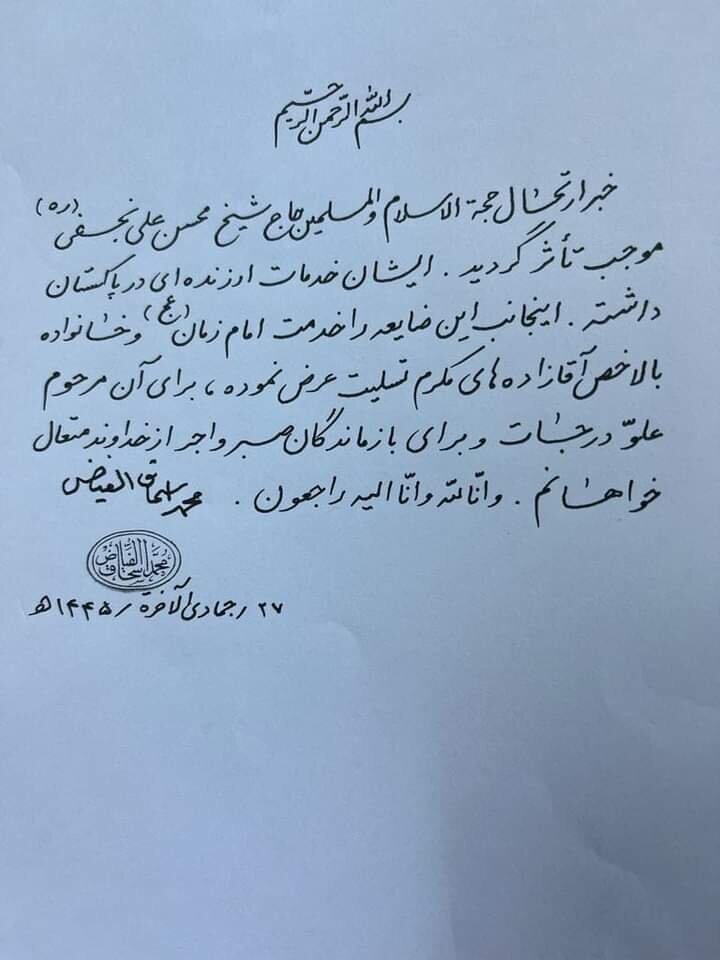 بسم الله الرحمن الرحیم
خبر ارتحال حجة الاسلام والمسلمین حاج شیخ محسن علی نجفی (ره)
موجب تأثر گردید. ایشان خدمات ارزنده ای در پاکستان
داشته. اینجانب این ضایعه را خدمت امام زمان (عج) و خانواده
بالاخص آقازاده های مکرم تسلیت عرض نموده، برای آن مرحوم
علوّ درجات و برای بازماندگان صبر و اجر از خداوند متعال
خواهانم. وانّا لله وانّا الیه راجعون. محمد اسحاق الفیاض
محمد اسحاق الفیاض
۲۷ / جمادی الآخرة / ۱۴۴۵ھ